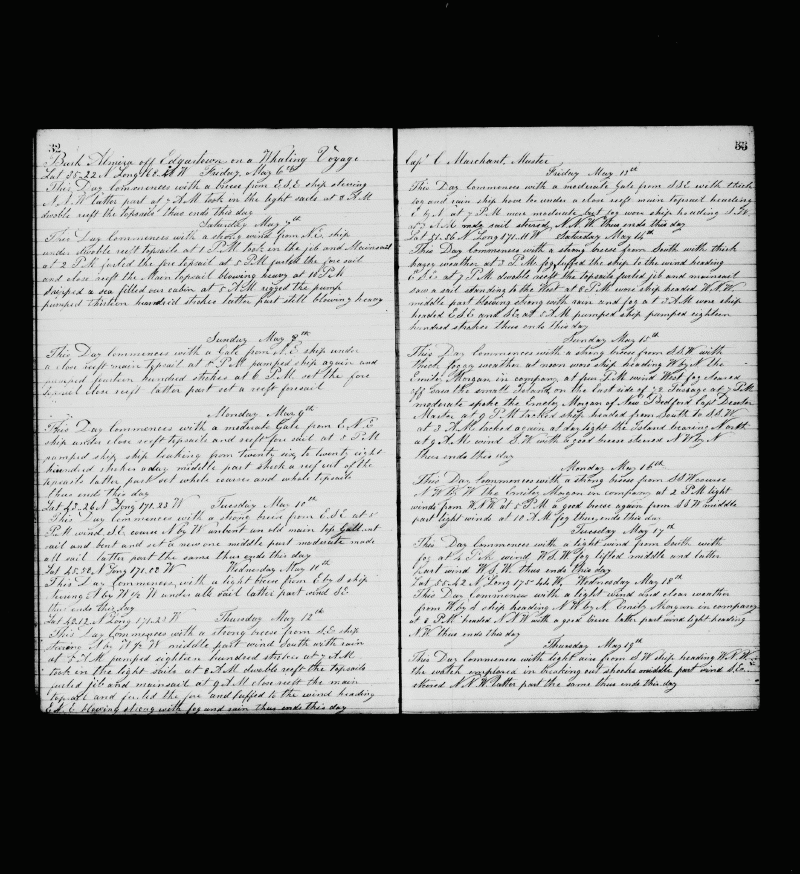 52
Bark Almira off Edgartown on a Whaling Voyage
Lat 35-22 N Long 168. W Friday, May 6th
This Day Commences with a breeze from E.S.E ship steering
N.N.W latter part at 7 A.M took in the light sails at 8 A.M
double reeft the topsails thus ends this day
Saturday May 7th
This Day Commences with a strong wind from N.E. ship
under double reeft topsails at 1 P.M took in the jib and Mainsail
at 2 P.M furled the fore topsail at 5 P.M furled the fore sail
and close reeft the Main topsail blowing heavy at 10 P.M
shipped a sea filled our cabin at 5 A.M rigged the pump
pumped thirteen hundred strokes latter part still blowing heavy
Sunday May 8th
This Day Commences with a Gale from N.E. ship under
a close reeft main topsail at 5 P.M pumped ship again and
pumped fourteen hundred strokes at 6 P.M set the fore
topsail close reeft latter part set a reeft foresail
Monday May 9th
This Day Commences with a moderate Gale from E.N.E
ship under close reeft topsails and reeft fore sail at 5 P.M
pumped ship ship leaking from twenty six to twenty eight
hundred strokes a day middle part shook a reef out of the
topsails latter part set whole courses and whole topsails
thus ends this day
Lat 43.26 N Long 171.23 W Tuesday May 10th
This Day Commences with a strong breeze from E.S.E at 5
P.M wind S.E. course N by W unbent an old main top Gallant
sail and bent and set a new one middle part moderate made
all sail latter part the same thus ends this day
Lat 45.52 N Long 171.22 W Wednesday May 11th
This Day Commences with a light breeze from E by S ship
steering N by W ½ W under all sail latter part wind SE
thus ends this day
Lat 49.12 N Long 171.21 W Thursday May 12th
This Day Commences with a strong breeze from S.E. ship
steering N by W ½ W middle part wind South with rain
at 5 A.M pumped eighteen hundred strokes at 7 A.M
took in the light sails at 8 A.M double reeft the topsails
furled jib and mainsail at 9 A.M close reeft the main
topsail and furled the fore and luffed to the wind heading
E.S.E. blowing strong with fog and rain thus ends this day
53
Capt C. Marchant, Master
Friday May 13th
This Day Commences with a moderate Gale from S.S.E with thick
fog and rain ship hove to under a close reeft main topsail heading
E by N at 7 P.M more moderate but fog wore ship heading S.W.
at 3 A.M made sail steered N.N.W. thus ends this day
Lat 51-56 N Long 171.11 W Saturday May 14th
This Day Commences with a strong breeze from South with thick
hazy weather at 3 P.M. fog luffed the ship to the wind heading
E.S.E at 7 P.M double reeft the topsails furled jib and mainsail
saw a sail standing to the West at 8 P.M wore ship headed W.N.W.
middle part blowing strong with rain and fog at 3 A.M wore ship
headed E.S.E and S.E. at 5 A.M pumped ship pumped eighteen
hundred strokes thus ends this day
Sunday May 15th
This Day Commences with a strong breeze from S.S.W. with
thick foggy weather at noon wore ship heading W by N the
Emily Morgan in company at four P.M wind West fog cleared
off saw the small Island on the East side of 72 Passage at 7 P.M
moderate spoke the Emily Morgan of New Bedford Capt Dexter
Master at 9 P.M tacked ship headed from South to S.S.W
at 3 A.M tacked again at daylight the Island bearing North
at 9 A.M wind S.W with a good breeze steered N W by N
thus ends this day
Monday May 16th
This Day Commences with a strong breeze from S.S.W course
N.W by W the Emily Morgan in company at 2 P.M light
winds from W.N.W at 5 P.M a good breeze again from S.S.W middle
part light winds at 10 A.M fog thus ends this day
Tuesday May 17th
This Day Commences with a light wind from South with
fog at 4 P.M wind W.S.W fog lifted middle and latter
part wind W.S.W. thus ends this day
Lat 55.42 N Long 175-44 W Wednesday May 18th
This Day Commences with a light wind and clear weather
from W by S ship heading N W by N. Emily Morgan in company
at 8 P.M headed N.N.W with a good breeze latter part wind light heading
N.W thus ends this day
Thursday May 19th
This Day Commences with light airs from S.W ship heading W.N.W
the watch employed in breaking out shooks middle part wind S.E.
steered N.N.W latter part the same thus ends this day